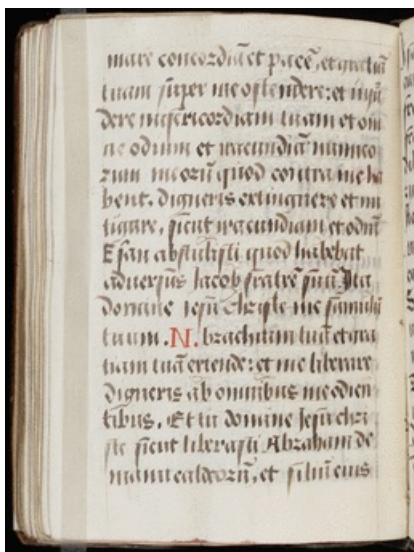 mare concordiā et pacē, et gratiā
tuam super me ostendere: et infū
dere misericordiam tuam et om
ne odium et iracundiā inimico
rum meorū quod contra me ha
bent. digneris extinguere et mi
tigare, sicut iracundiam et odiū
Esau abstulisti quod habebat
adversus Jacob fratrē suū. Ita
domine iesu christe me famulū
tuum .N. brachium tuū et gra
tiam tuā extende: et me liberare
digneris ab omnibus me odien
tibus. Et tu domine Jesu chri
ste sicut liberasti Abraham de
manu caldeorū, et filiū eius